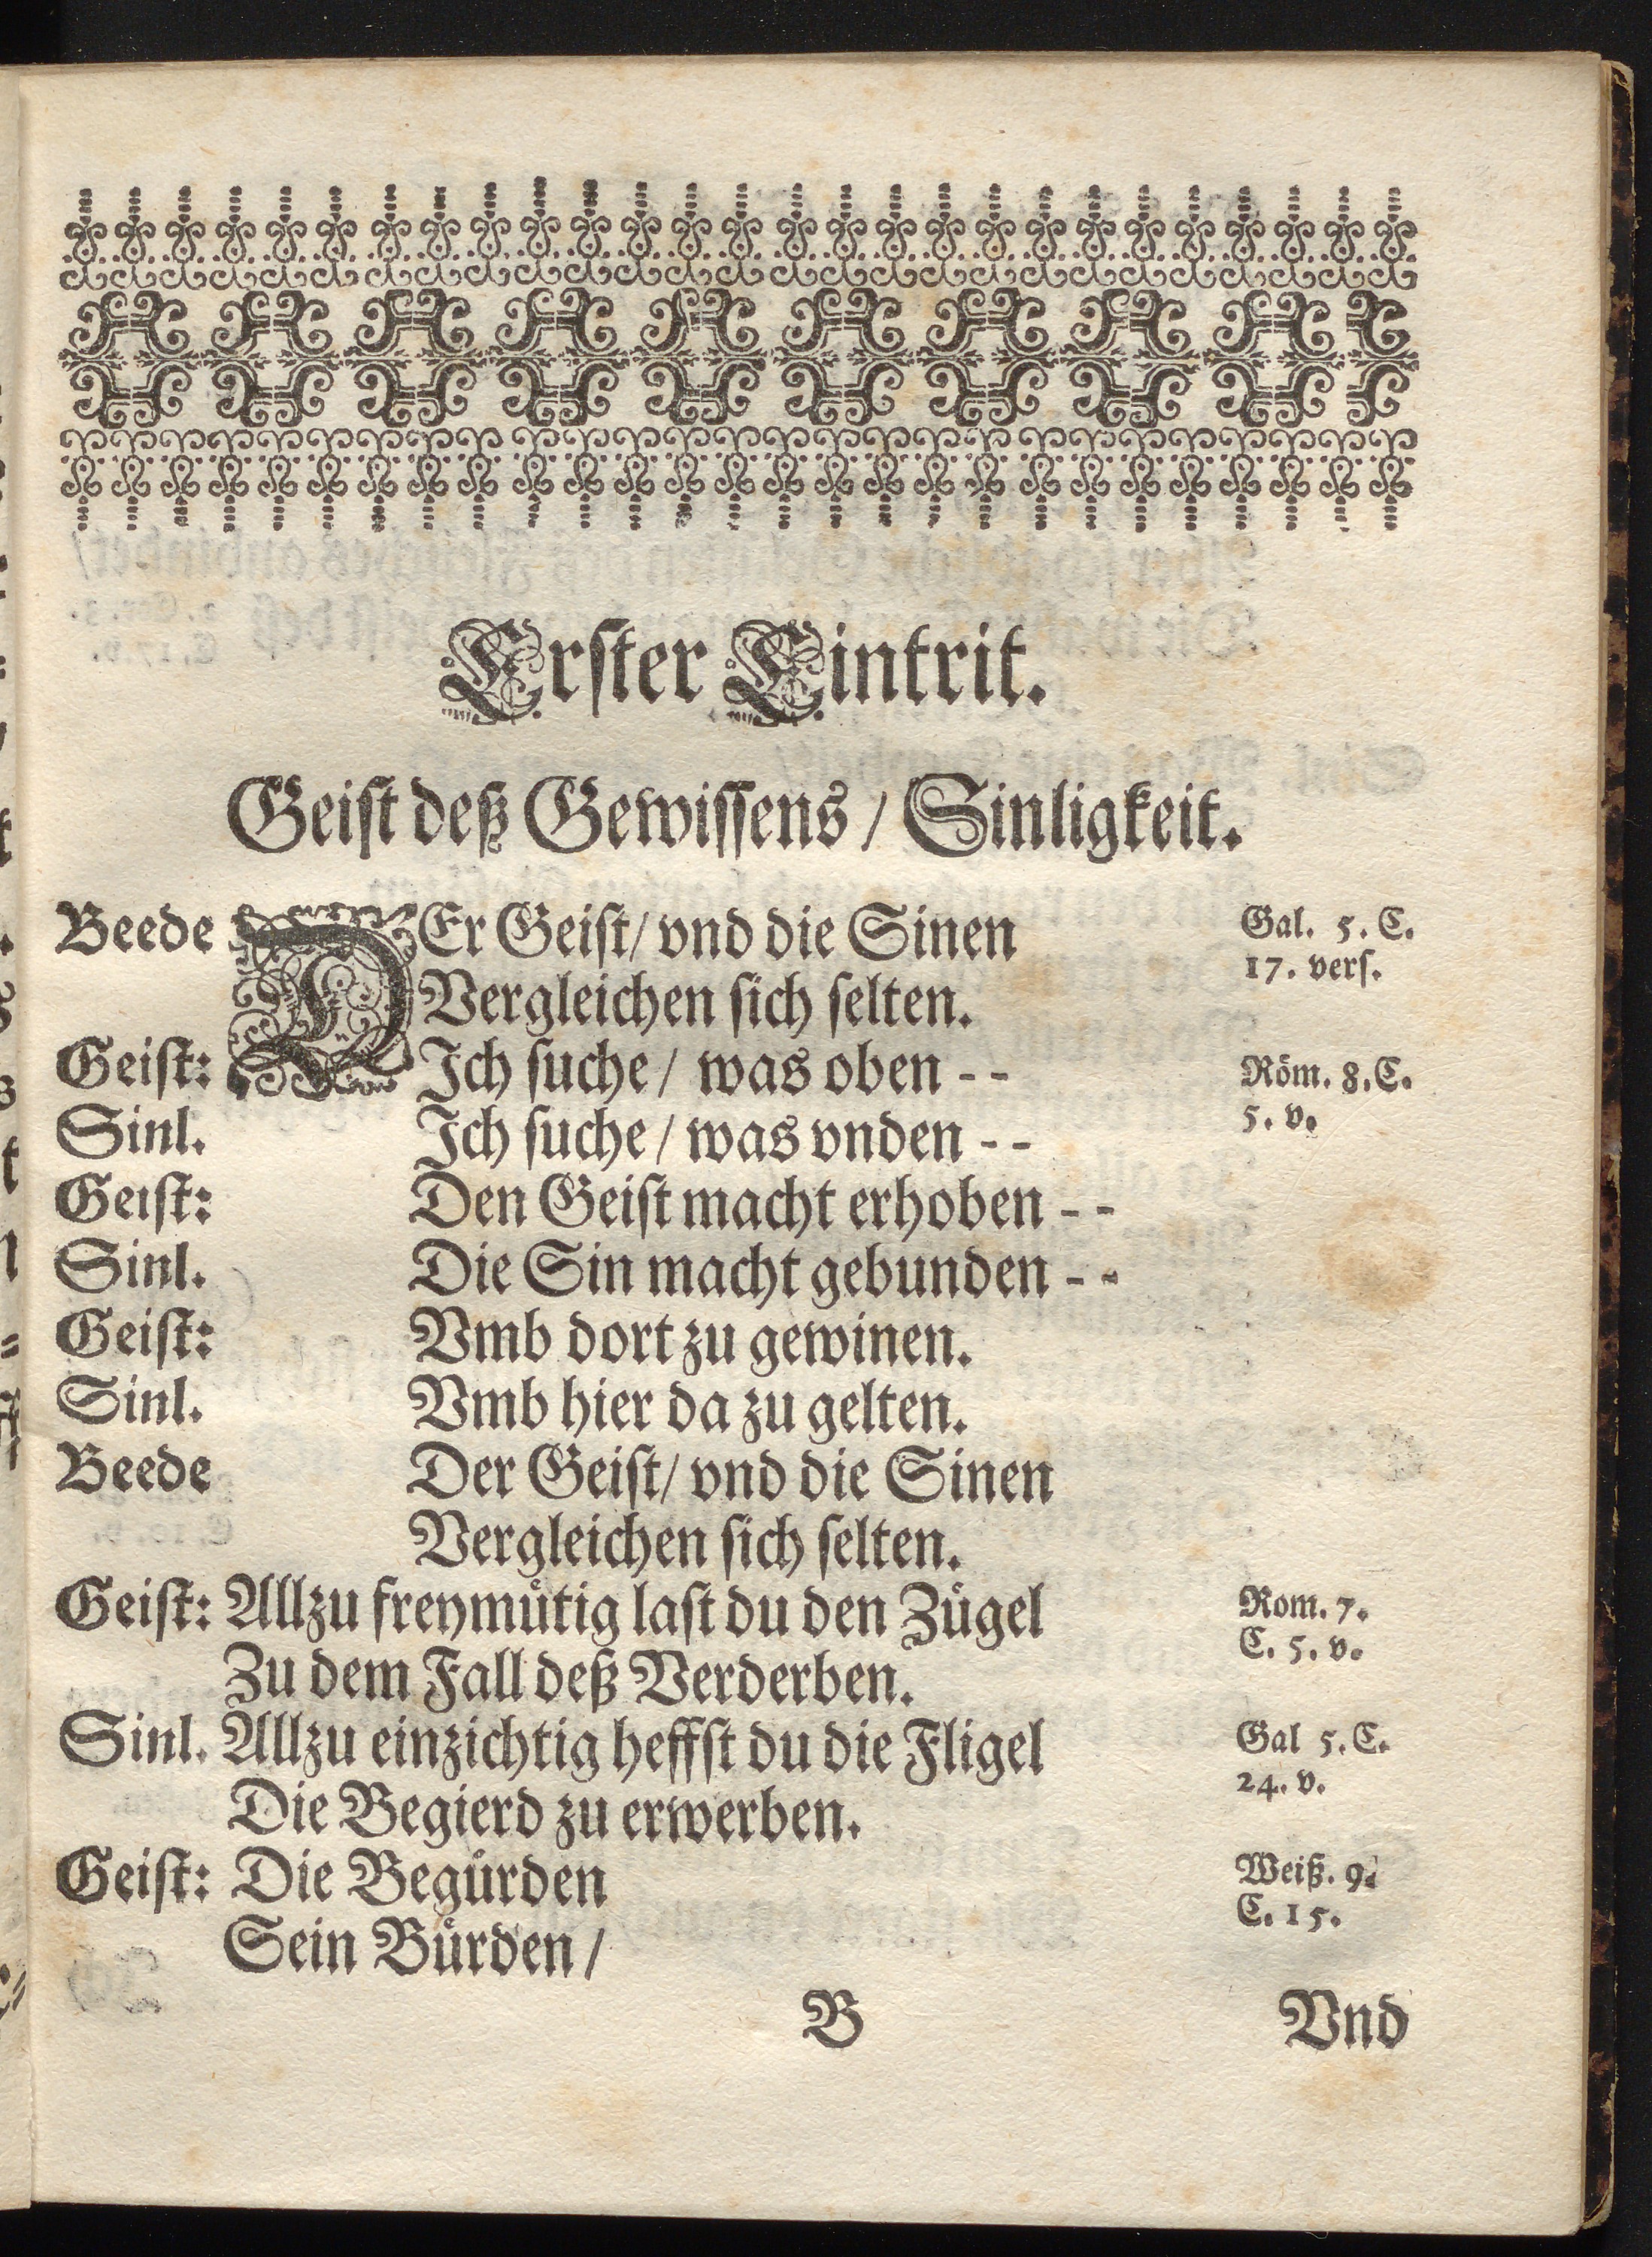 Erster Eintrit.
Geist deß Gewissens / Sinligkeit.
Beede DEr Geist / vnd die Sinen Gal. 5. C.
17. vers.
Vergleichen sich selten.
Geist: Ich suche / was oben - - Röm. 8. C.
5. v.
Sinl. Ich suche / was vnden - -
Geist: Den Geist macht erhoben - -
Sinl. Die Sin macht gebunden - -
Geist: Vmb dort zu gewinen.
Sinl. Vmb hier da zu gelten.
Beede Der Geist / vnd die Sinen
Vergleichen sich selten.
Geist: Allzu freymuͤtig last du den Zuͤgel Rom. 7.
C. 5. v.
Zu dem Fall deß Verderben.
Sinl. Allzu einzichtig heffst du die Fligel Gal 5. C.
24. v.
Die Begierd zu erwerben.
Geist: Die Beguͤrden Weiß. 9.
C. 15.
Sein Buͤrden /
B Vnd